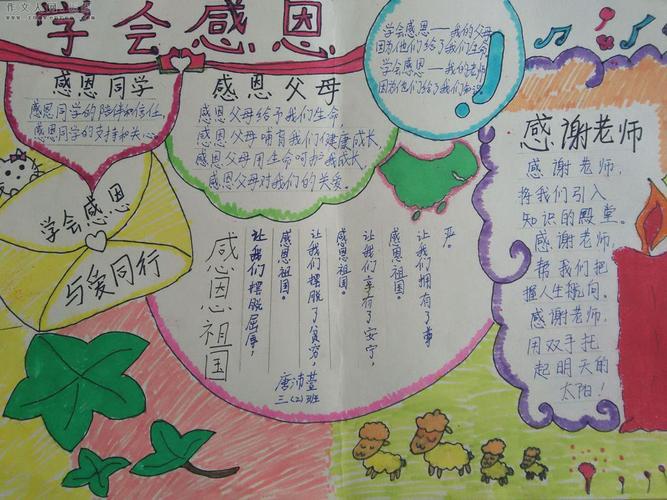 学会感恩
感恩同学
感恩同学的陪伴和信任,
感恩同学的支持和关心。
感恩父母
感恩父母给予我们生命,
感恩父母哺育我们健康成长,
感恩父母用生命呵护我成长,
感恩父母对我们的关爱。
学会感恩——我的父母
因为他们给了我们生命
学会感恩——我的老师
因为他们给了我们知识
学会感恩
与爱同行
感恩祖国
让我们摆脱屈辱,
感恩祖国。
让我们摆脱了贫穷,
感恩祖国。
让我们享有了安宁,
感恩祖国。
让我们拥有了尊
严。
唐沛萱
三(2)班
感谢老师
感谢老师,
将我们引入
知识的殿堂。
感谢老师,
帮我们把
握人生航向。
感谢老师,
用双手托
起明天的
太阳!